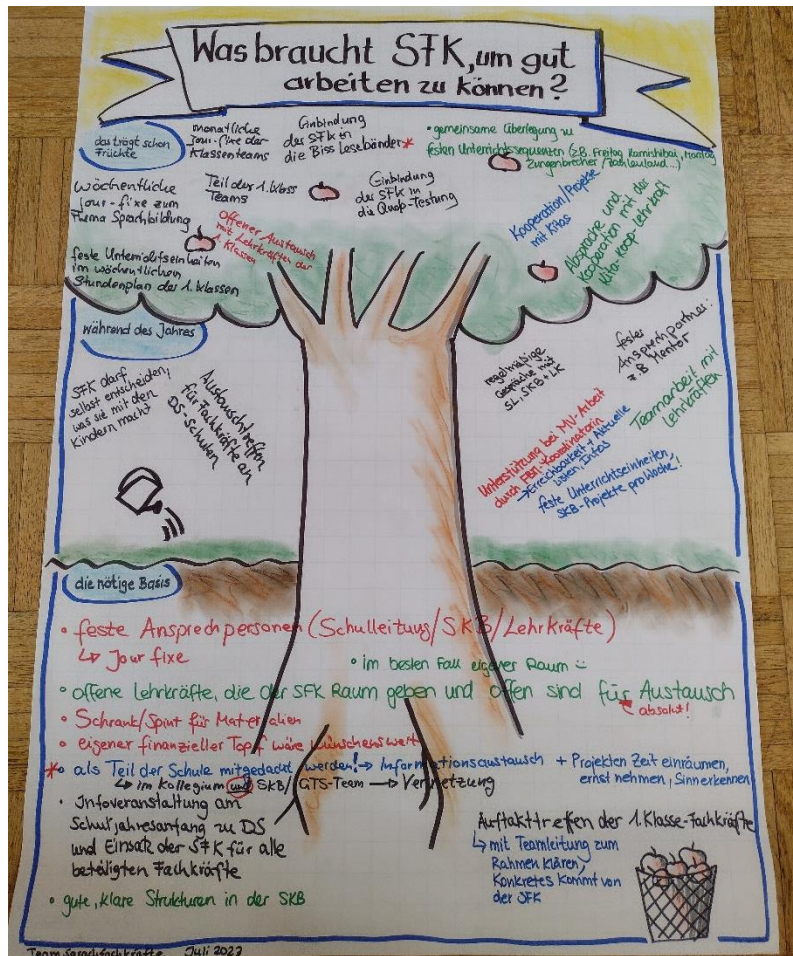 Was braucht SFK, um gut
arbeiten zu können?
das trägt schon
Früchte
monatliche
Jour-fixe der
Klassenteams
Einbindung
der SFK in
die Biss Lesebänder*
• gemeinsame Überlegung zu
festen Unterrichtssequenzen (z.B. Freitag Kamishibai, Montag
Zungenbrecher / Zahlenland...)
wöchentliche
jour-fixe zum
Thema Sprachbildung
Teil der 1. klass
Teams
Einbindung
der SFK in
die Quop-Testung
Offener Austausch
mit Lehrkräften der
1. Klassen
Kooperation/Projekte
mit Kitas
Absprache und
Kooperation mit der
Kita-Koop-Lehrkraft
feste Unterrichtseinheiten
im wöchentlichen
Stundenplan der 1. klassen
während des Jahres
SFK darf
selbst entscheiden,
was sie mit den
Kindern macht
Austauschtreffen
für Fachkräfte an
DS-Schulen
regelmäßige
Gespräche mit
SL, SKB + LK
fester
Ansprechpartner:
z.B Mentor
Teamarbeit mit
Lehrkräften
Unterstützung bei MV-Arbeit
durch FBM-Koordinatorin
→ Erreichbarkeit + Aktuelle
Listen, Infos
feste Unterrichtseinheiten,
SKB-Projekte pro Woche!
die nötige Basis
• feste Ansprechpersonen (Schulleitung/SKB/Lehrkräfte)
↳ Jour fixe
• im besten Fall eigener Raum
• offene Lehrkräfte, die der SFK Raum geben und offen sind für Austausch
absolut!
• Schrank/Spint für Materialien
• eigener finanzieller Topf wäre wünschenswert
*• als Teil der Schule mitgedacht werden! → Informationsaustausch + Projekten Zeit einräumen,
ernst nehmen, Sinn erkennen
↳ im Kollegium und SKB/GTS-Team → Vernetzung
• Infoveranstaltung am
Schuljahresanfang zu DS
und Einsatz der SFK für alle
beteiligten Fachkräfte
• gute, klare Strukturen in der SKB
Auftakttreffen der 1. Klasse-Fachkräfte
↳ mit Teamleitung zum
Rahmen klären,
Konkretes kommt von
der SFK
Team Sprachfachkräfte Juli 2023